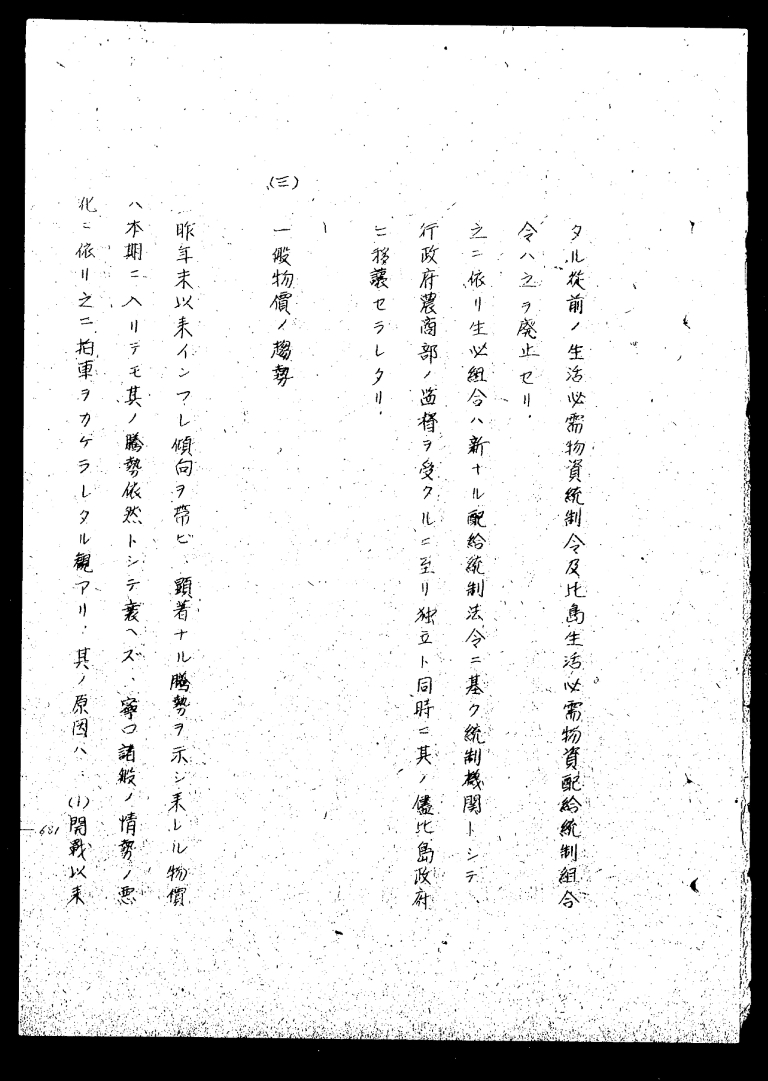 タル従前ノ生活必需物資統制令及比島生活必需物資配給統制組合
令ハ之ヲ廃止セリ、
之ニ依リ生必組合ハ新ナル配給統制法令ニ基ク統制機関トシテ、
行政府農商部ノ監督ヲ受クルニ至リ独立ト同時ニ其ノ儘比島政府
ニ移譲セラレタリ、
(三)
一般物價ノ趨勢
昨年末以来インフレ傾向ヲ帯ビ、顕著ナル騰勢ヲ示シ来レル物價
ハ本期ニ入リテモ其ノ騰勢依然トシテ衰ヘズ、寧ロ諸般ノ情勢ノ悪
化ニ依リ之ニ拍車ヲカケラレタル観アリ、其ノ原因ハ、(1)開戦以来
681